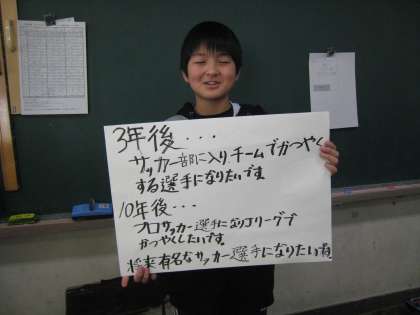 3年後・・・
サッカー部に入り、チームでかつやく
する選手になりたいです。
10年後・・・
プロサッカー選手になりJリーグで
かつやくしたいです。
将来有名なサッカー選手になりたいです。